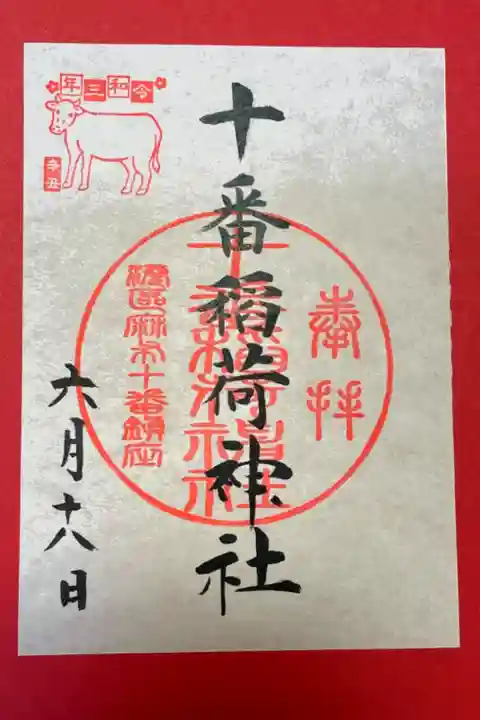 令和三年
辛丑
奉拝
十番稲荷神社
十番稲荷神社
港区麻布十番鎮座
六月十八日